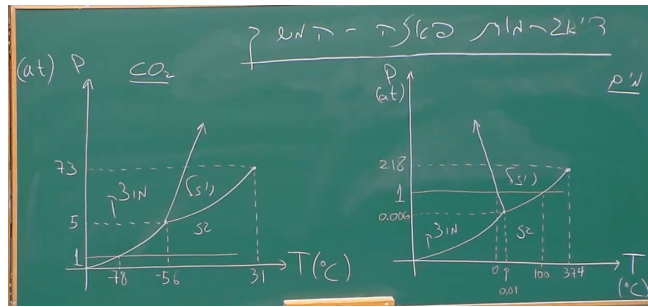 דיאגרמות פאזה - המשך
(at) P
CO₂
73
5
1
מוצק
נוזל
גז
-78
-56
31
T(°C)
P
(at)
מים
218
1
0.006
מוצק
נוזל
גז
0
0.01
100
374
T
(°C)